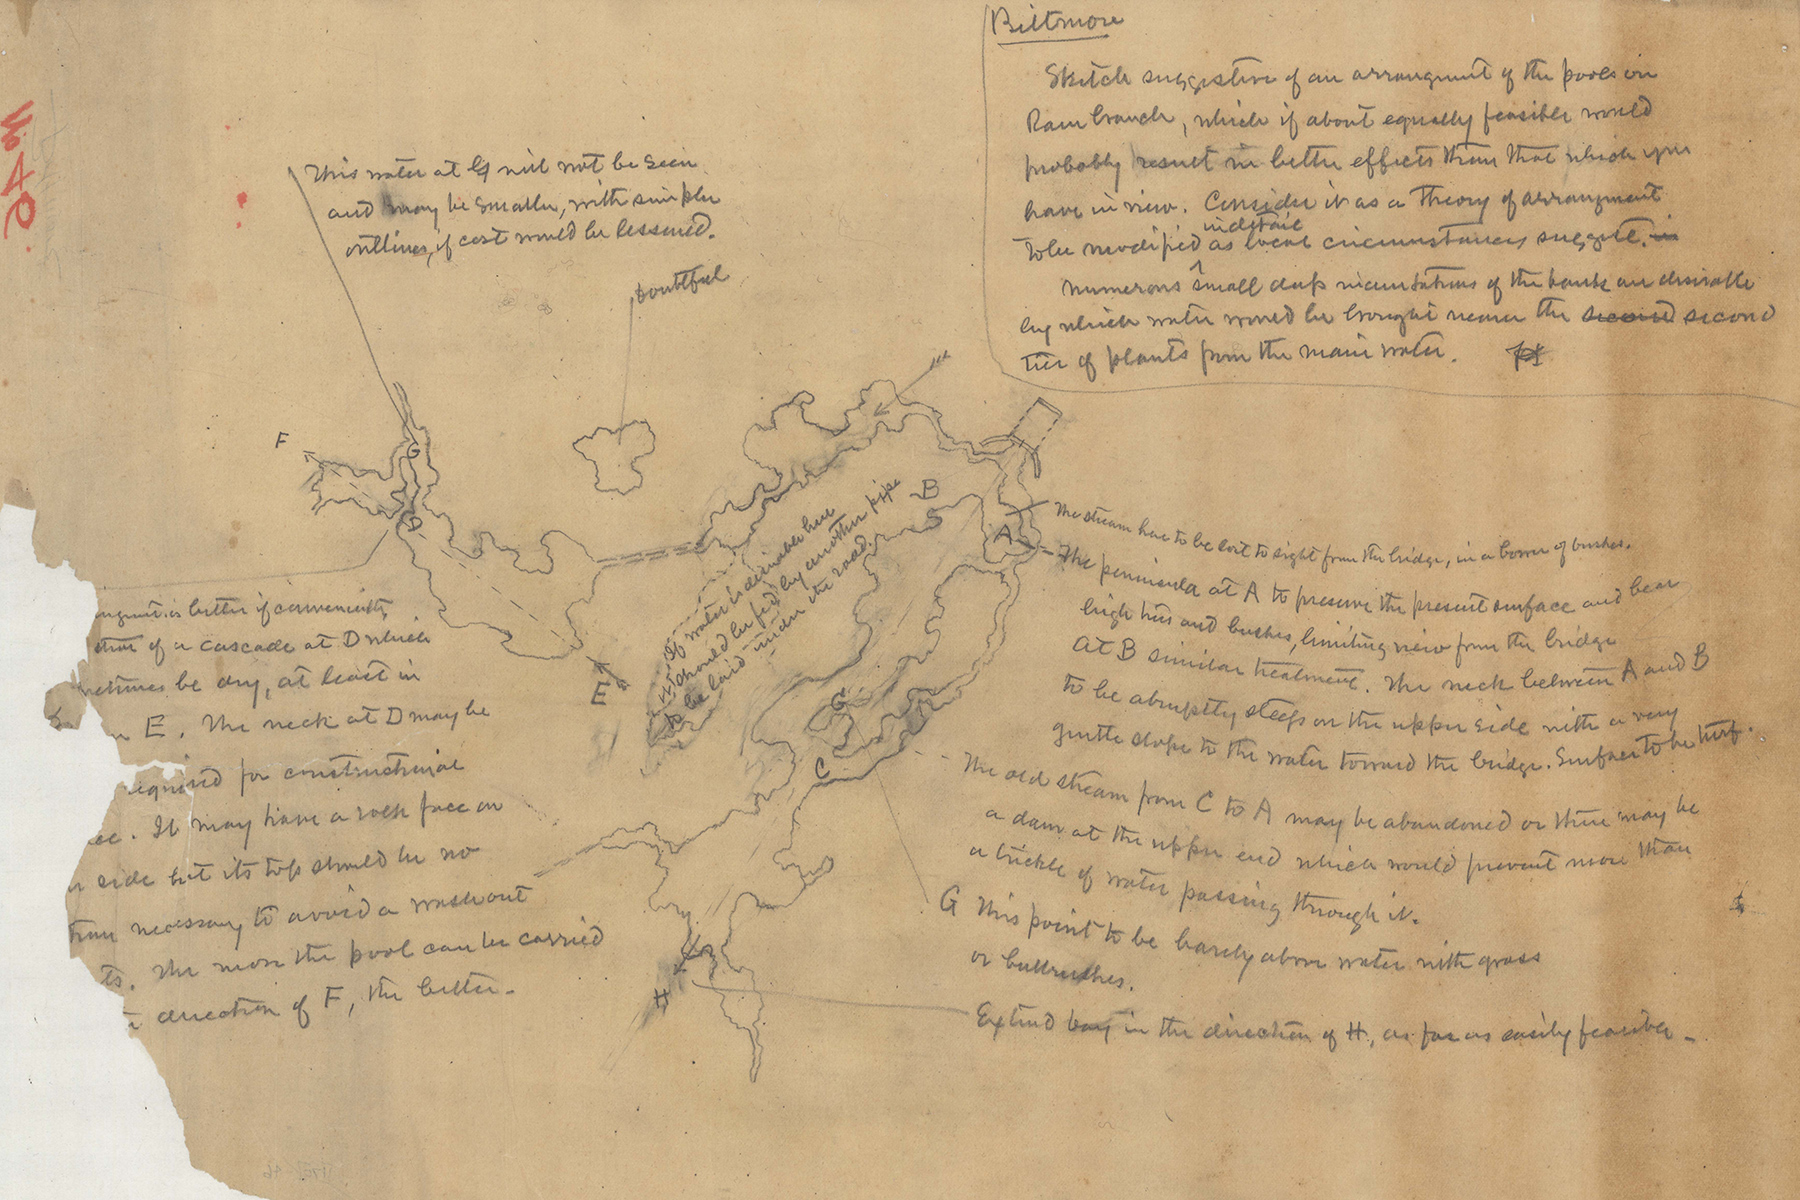 Biltmore
Sketch suggestive of an arrangment of the pools on
Ram branch, which if about equally feasible would
probably result in better effects than that which you
have in view. Consider it as a theory of arrangment
to be modified in detail as local circumstances suggest.
Numerous small deep indentations of the banks are desirable
by which water would be brought nearer the second second
tier of plants from the main water.
This water at G will not be seen
and may be smaller, with simpler
outlines, if cost would be lessened.
doubtful
F
G
D
E
B
A
G
C
H
If water is desirable here
it should be fed by another pipe
to be laid under the road.
The stream here to be lost to sight from the bridge, in a bower of bushes.
The peninsula at A to preserve the present surface and bear
high trees and bushes, limiting view from the bridge
At B similar treatment. The neck between A and B
to be abruptly steep on the upper side with a very
gentle slope to the water toward the bridge. Surface to be turf.
The old stream from C to A may be abandoned or there may be
a dam at the upper end which would prevent more than
a trickle of water passing through it.
G This point to be barely above water with grass
or bullrushes.
Extend bay in the direction of H, as far as easily feasible
is better if conveniently
of a cascade at D which
be dry, at least in
E. The neck at D may be
required for constructional
It may have a rock face on
side but its top should be no
than necessary to avoid a washout
The more the pool can be carried
direction of F, the better.